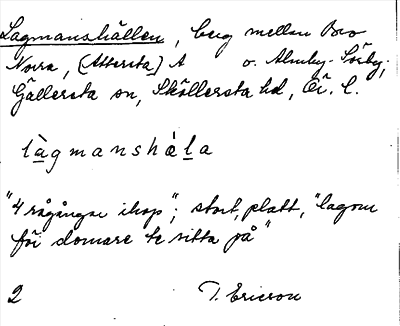 Lagmanshällen, berg mellan Bro
Norra, (Attersta) A o. Almby-Sörby,
Gällersta sn, Sköllersta hd, Ör. l.
làgmanshála
"4 rågångar ihop"; stort, platt, "lagom
för domare te sitta på"
2 T. Ericson